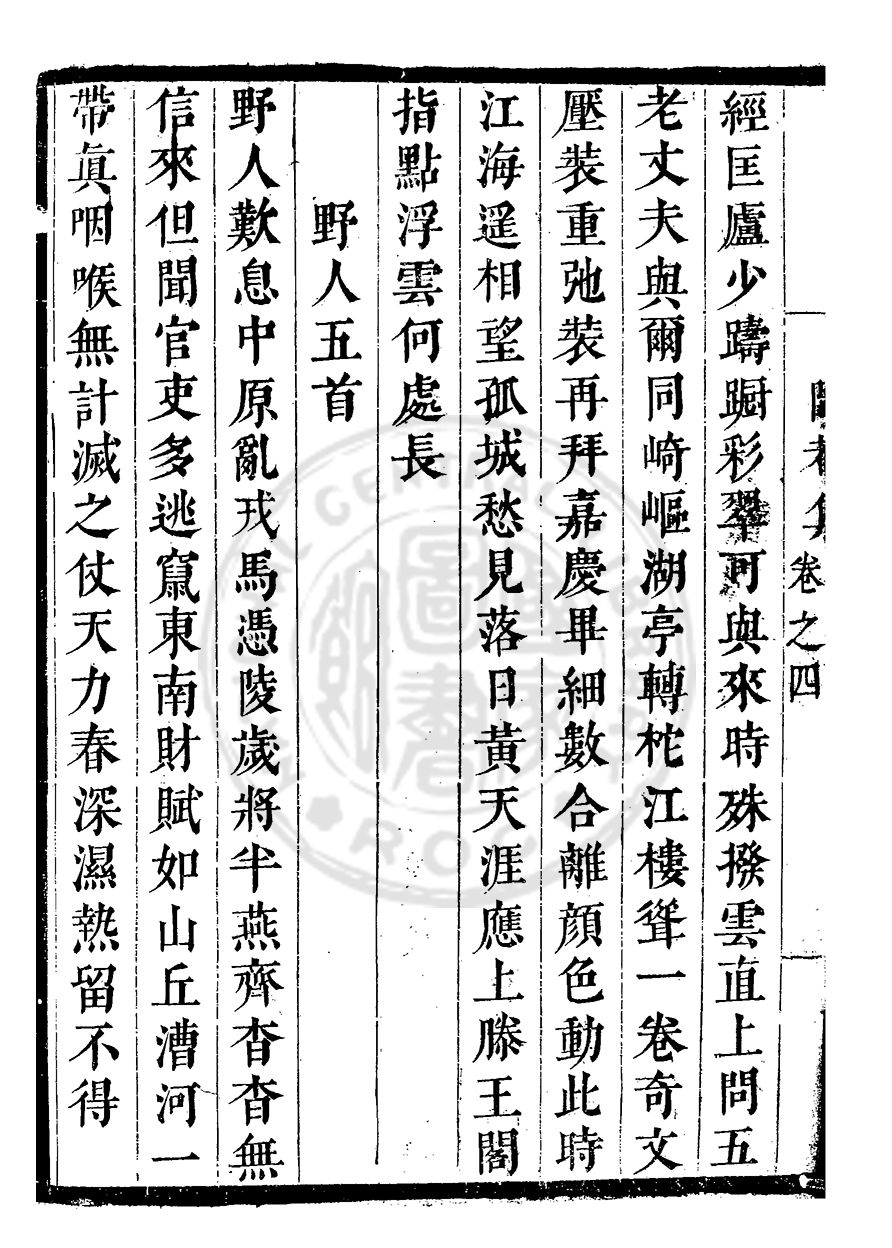 經匡廬少躊蹰彩翠可與來時殊撥雲直上問五
老丈夫與爾同崎嶇湖亭轉柁江樓聳一卷奇文
壓裝重弛裝再拜嘉慶畢細數合離顔色動此時
江海遥相望孤城愁見落日黃天涯應上滕王閣
指點浮雲何處長
野人五首
野人歎息中原亂戎馬憑陵歲將半燕齊杳杳無
信來但聞官吏多逃竄東南財賦如山丘漕河一
帶眞咽喉無計滅之仗天力春深濕熱留不得
卷之四